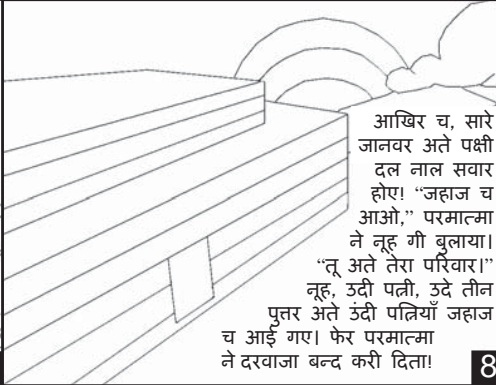 आखिर च, सारे
जानवर अते पक्षी
दल नाल सवार
होए! “जहाज च
आओ,” परमात्मा
ने नूह गी बुलाया।
“तू अते तेरा परिवार।”
नूह, उदी पत्नी, उदे तीन
पुत्तर अते उंदी पत्नियाँ जहाज
च आई गए। फेर परमात्मा
ने दरवाजा बन्द करी दिता!
8